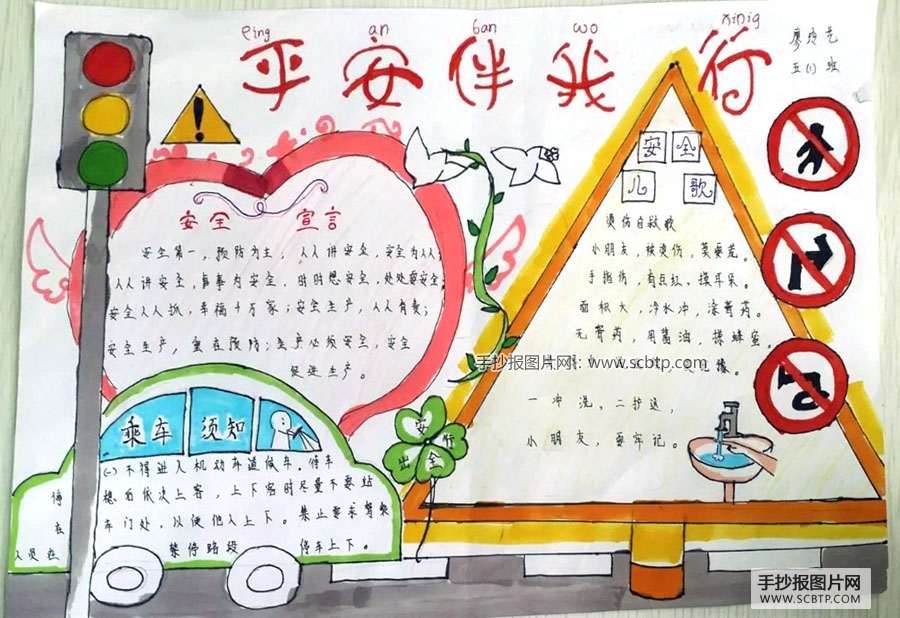 ping an ban wo xinig
平安伴我行
廖 艺
五(1)班
安全 宣言
安全第一,预防为主; 人人讲安全,安全为人人
人人讲安全,事事为安全, 时时想安全,处处要安全;
安全人人抓,幸福千万家;安全生产,人人有责;
安全生产,重在预防;生产必须安全,安全
促进生产。
安全
儿歌
烫伤自救歌
小朋友,被烫伤,莫要慌。
手指伤,有点红,摸耳朵。
面积大,冷水冲,涂膏药。
无膏药,用酱油,抹蜂蜜。
手抄报图片网: www.scbtp.com
一冲洗,二护送,
小朋友,要牢记。
安行
出全
乘车须知
(一)不得进入机动车道候车。停车
停稳后依次上客,上下客时尽量不要站
在车门处,以便他人上下。禁止要求驾驶
人员在禁停路段停车上下。
手抄报图片网
WWW.SCBTP.COM